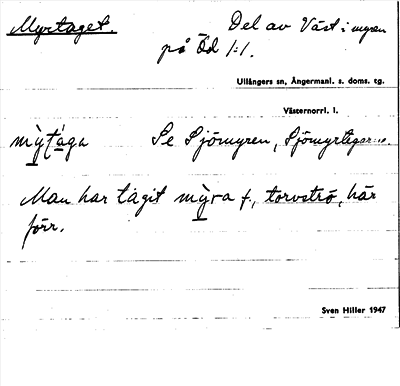 Myrtaget. Del av Västimyren
på Öd 1:1.
Ullångers sn, Ångermanl. s. doms. tg.
Västernorrl. l.
mỳtaga Se Sjömyren,
Man har tagit mỳra f., torvströ, här
förr.
Sven Hiller 1947